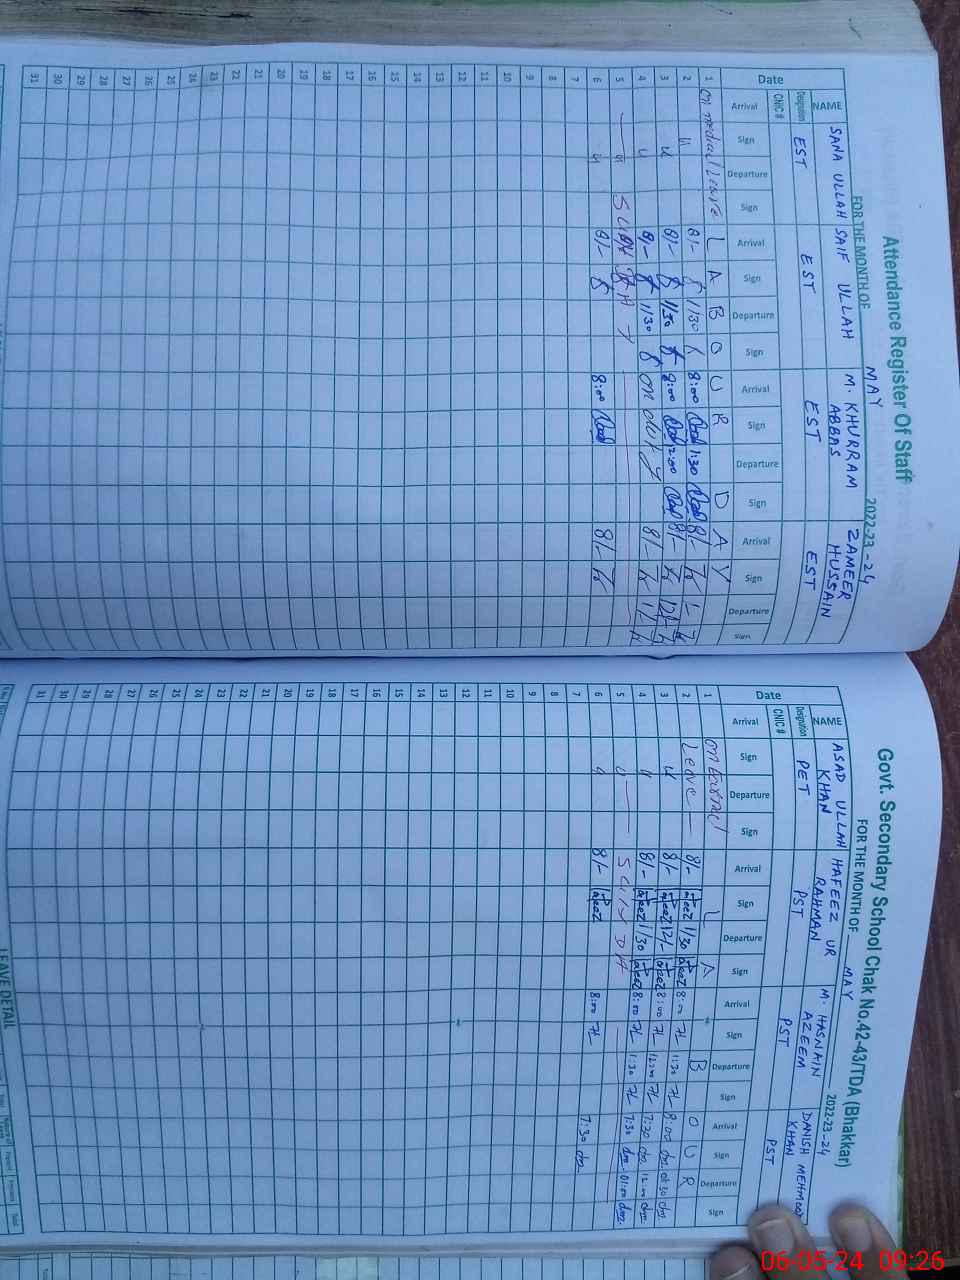 Attendance Register Of Staff
FOR THE MONTH OF MAY 2022-23-24
NAME SANA ULLAH SAIF ULLAH M. KHURRAM ABBAS ZAMEER HUSSAIN
Designation EST EST EST EST
CNIC #
Date Arrival Sign Departure Sign Arrival Sign Departure Sign Arrival Sign Departure Sign Arrival Sign Departure Sign
1 On medical Leave L A B O U R D A Y
2 " 8/- 1/30 8:00 1:30 8/- 1/-
3 " 8/- 11/30 8:00 12:00 8/- 12/-
4 " 8/- 1/30 On duty 8/- 1/-
5 "
6 " 8/- 8:00 8/-
7
8
9
10
11
12
13
14
15
16
17
18
19
20
21
22
23
24
25
26
27
28
29
30
31
Govt. Secondary School Chak No.42-43/TDA (Bhakkar)
FOR THE MONTH OF MAY 2022-23-24
NAME ASAD ULLAH KHAN HAFEEZ UR RAHMAN M. HASNAIN AZEEM DANISH MEHMOOD KHAN
Designation PET PST PST PST
CNIC #
Date Arrival Sign Departure Sign Arrival Sign Departure Sign Arrival Sign Departure Sign Arrival Sign Departure Sign
1 L A B O U R
2 Leave 8/- 1/30 8:00 1:30 8:00
3 " 8/- 12/- 8:00 12:00 7:30 12:00
4 " 8/- 1/30 8:00 1:30 7:30 01:00
5 "
6 " 8/- 8:00 7:30
7
8
9
10
11
12
13
14
15
16
17
18
19
20
21
22
23
24
25
26
27
28
29
30
31
LEAVE DETAIL
06-05-24 09:26